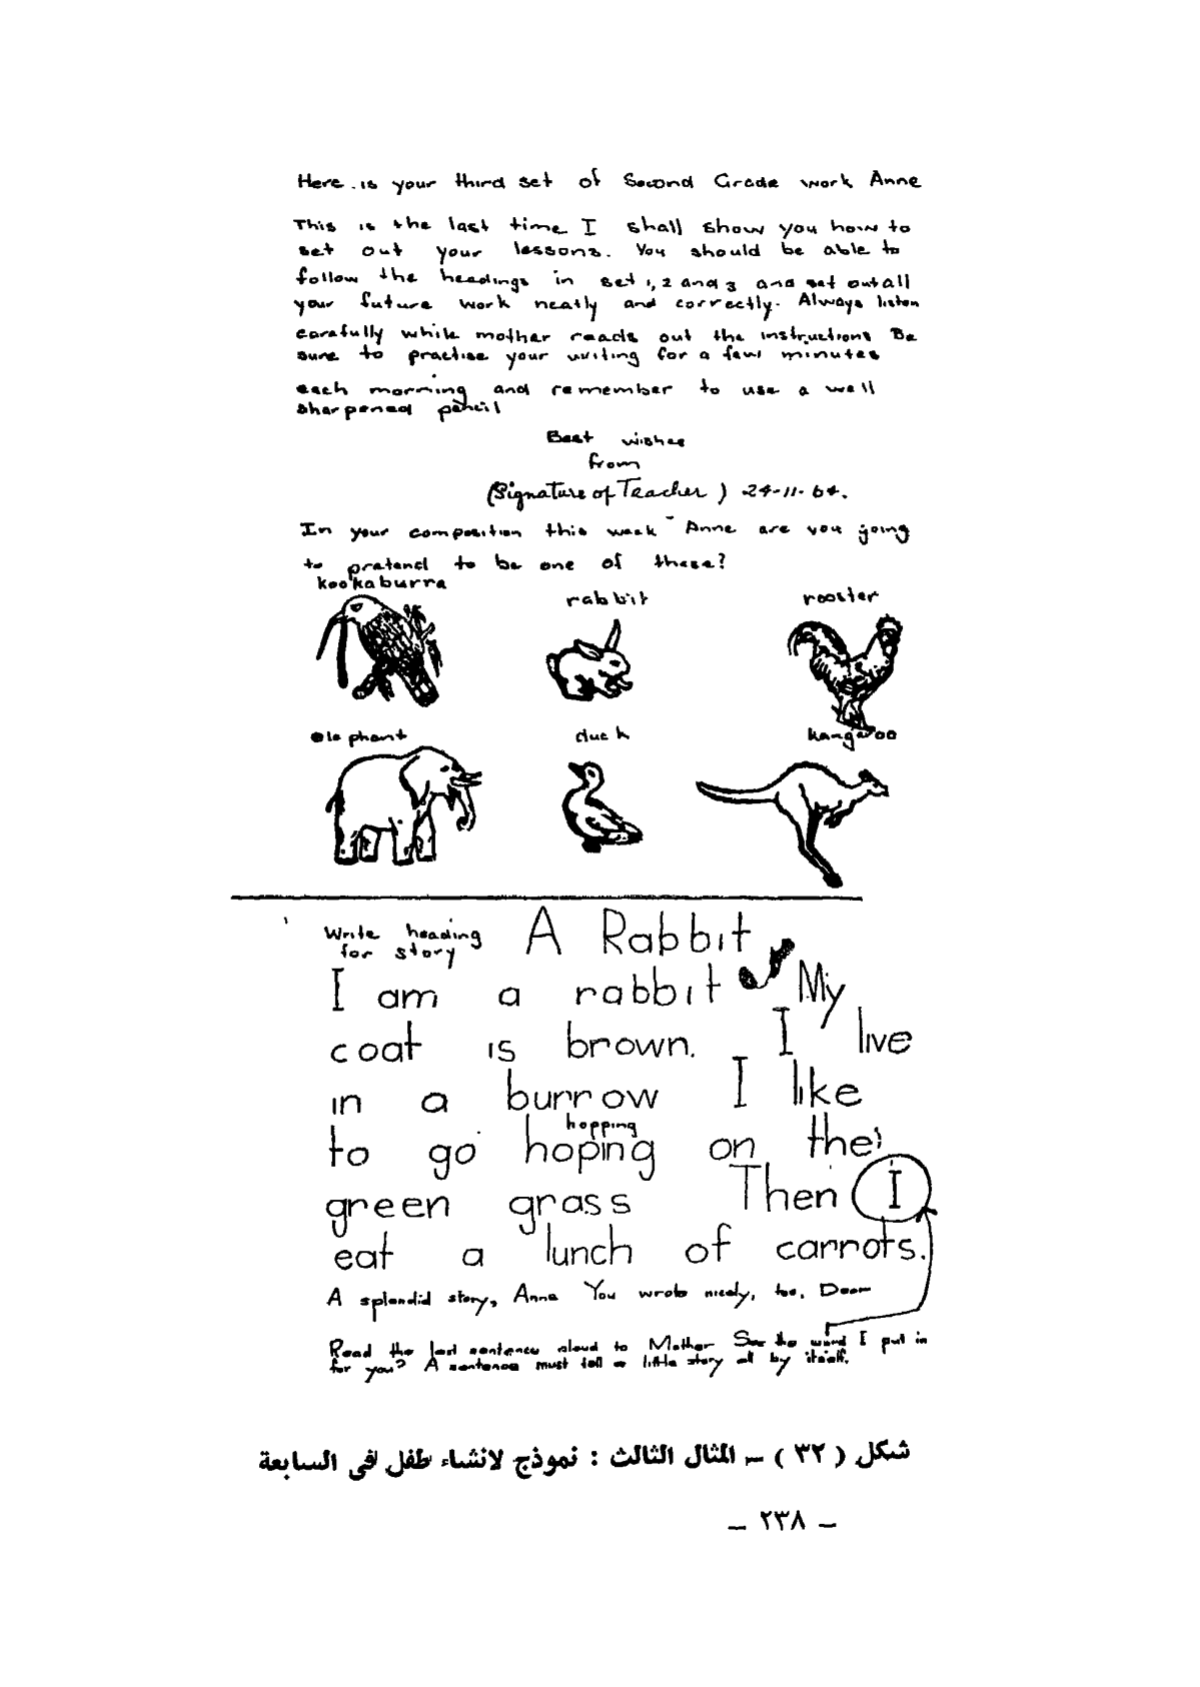 Here is your third set of Second Grade work Anne
This is the last time I shall show you how to
set out your lessons. You should be able to
follow the headings in set 1, 2 and 3 and set out all
your future work neatly and correctly. Always listen
carefully while mother reads out the instructions Be
sure to practise your writing for a few minutes
each morning and remember to use a well
sharpened pencil
Best wishes
from
(Signature of Teacher) 24-11-64.
In your composition this week Anne are you going
to pretend to be one of these?
kookaburra
rabbit
rooster
elephant
duck
kangaroo
Write heading
for story
A Rabbit
I am a rabbit My
coat is brown. I live
in a burrow I like
hopping
to go hoping on the
green grass Then I
eat a lunch of carrots.
A splendid story, Anne You wrote nicely, too, Dear
Read the last sentence aloud to Mother See the word I put in
for you? A sentence must tell a little story all by itself.
شكل (٣٢) – المثال الثالث : نموذج لانشاء طفل فى السابعة
– ٢٣٨ –